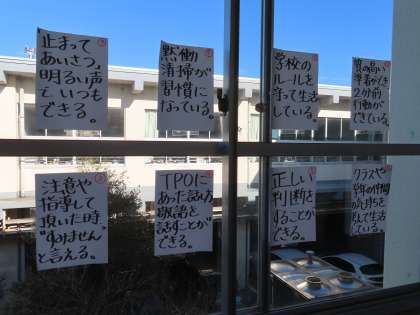 止まって
あいさつ。
明るい声
で いつも
できる。
黙働
清掃が
習慣に
なっている。
学校の
ルールを
守って生活
している。
質の高い
準備ができ
2分前
行動が
できている。
注意や
指導して
頂いた時
"すみません"
と言える。
TPOに
あった話し方
敬語を
話すことが
できる。
正しい
判断を
することが
できる。
クラスや
学年の仲間
の気持ちを
考えて生活
している。